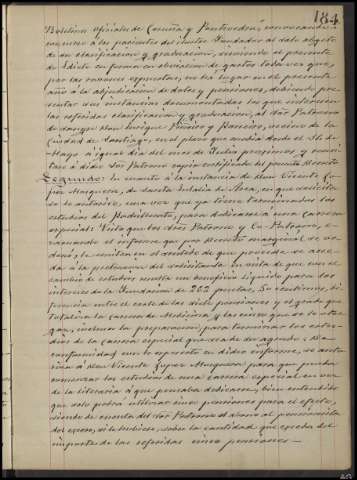 184
Boletines oficiales de Coruña y Pontevedra, convocando
concurso á los parientes del ilustre Fundador al solo objeto
de su clasificacion y graduacion, sirviendo el presente
de Edicto en forma en obviacion de gastos toda vez que,
por las razones expuestas, no há lugar en el presente
año á la adjudicacion de dotes y pensiones, debiendo pre-
sentar sus instancias documentadas los que interesen
las referidas clasificacion y graduacion, al Sor Patrono
de sangre Don Enrique y vecino de la
Ciudad de Santiago, en el plazo que media desde el 31 de
Mayo á igual dia del mes de Julio proximos y remi-
tase á dicho Sor Patrono copia certificada del presente Decreto
Segundo: En cuanto á la instancia de Don Vicente Lo-
pez Mosquera, de Santa Eulalia de en que solicita
se le autorice, una vez que ya tiene terminados los
estudios del Bachillerato, para dedicarse á una carrera
especial: Visto que los Sres Patrono y Co-Patrono, e-
vacuando el informe que por decreto marginal se or-
denó, le emiten en el sentido de que procede se acce-
da á la pretension del solicitante en vista de que con el
cambio de estudios resulta un beneficio líquido para los
intereses de la Fundacion de 262 pesetas, 50 centimos, di-
ferencia entre el coste de las siete pensiones y el grado que
totaliza la carrera de Medicina y las cinco que se le otor-
gan, inclusa la preparacion para terminar los estu-
dios de la carrera especial que trata de seguir: De
conformidad con lo expuesto en dicho informe, se auto-
riza á Don Vicente Lopez Mosquera para que pueda
comenzar los estudios de una carrera especial en vez
de la literaria á que pensaba dedicarse, bien entendido
que solo podrá utilizar cinco pensiones para el efecto,
siendo de cuenta del Sor Patrono el abono al pensionista
del exceso, si le hubiese, sobre la cantidad que exceda del
importe de las referidas cinco pensiones.—